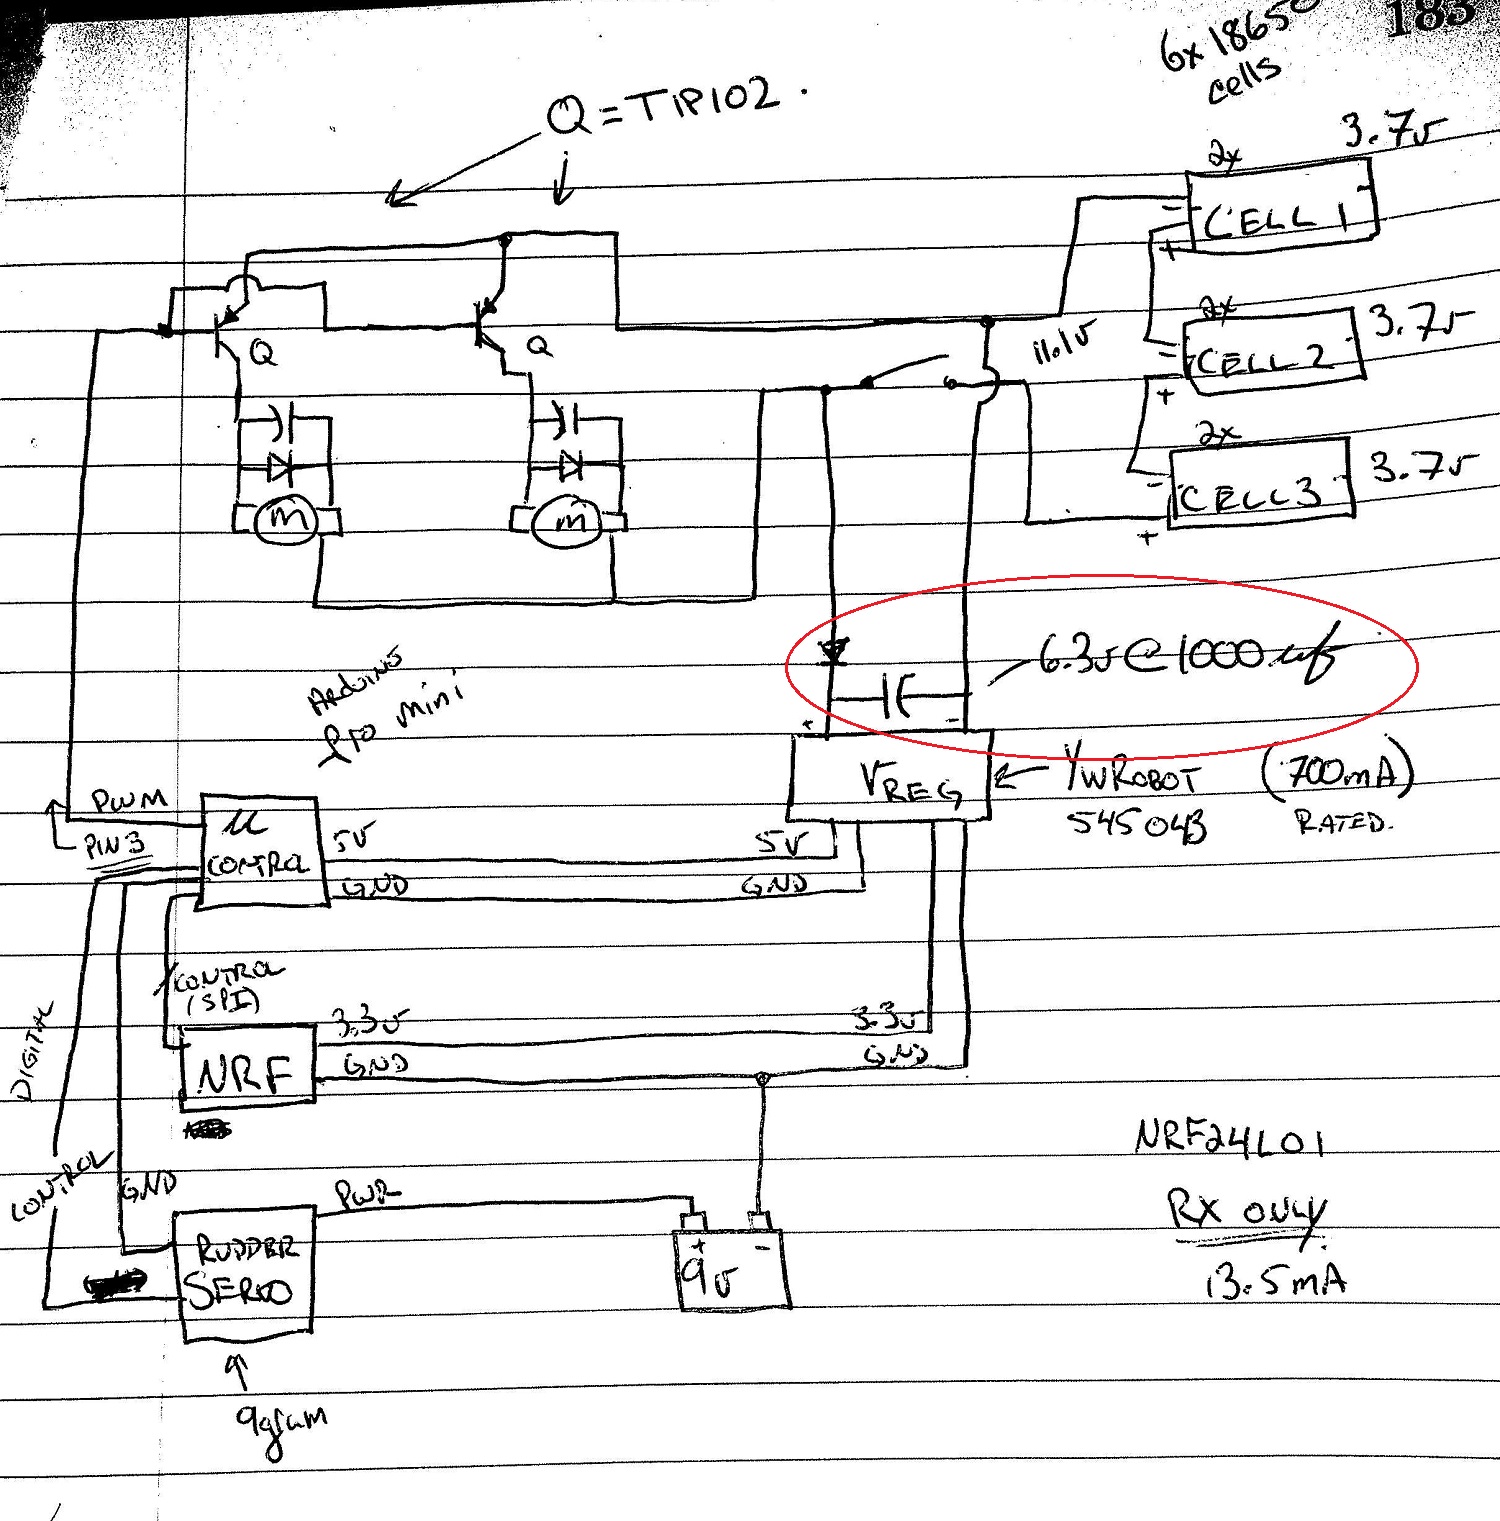 183
6x 18650
cells
Q = TIP102.
2x
3.7v
-
-
CELL 1
+
2x
3.7v
-
-
CELL 2
+
2x
3.7v
-
-
CELL 3
+
11.1v
Q
Q
M
M
6.3v @ 1000 uf
+
-
VREG
YWROBOT
545043
(700mA)
RATED.
Arduino
Pro mini
PWM
PIN 3
µ
CONTROL
5V
5V
GND
GND
CONTROL
(SPI)
DIGITAL
NRF
3.3v
3.3v
GND
GND
CONTROL
GND
RUDDER
SERVO
PWR
+
-
9v
9gram
NRF24L01
RX ONLY
13.5mA